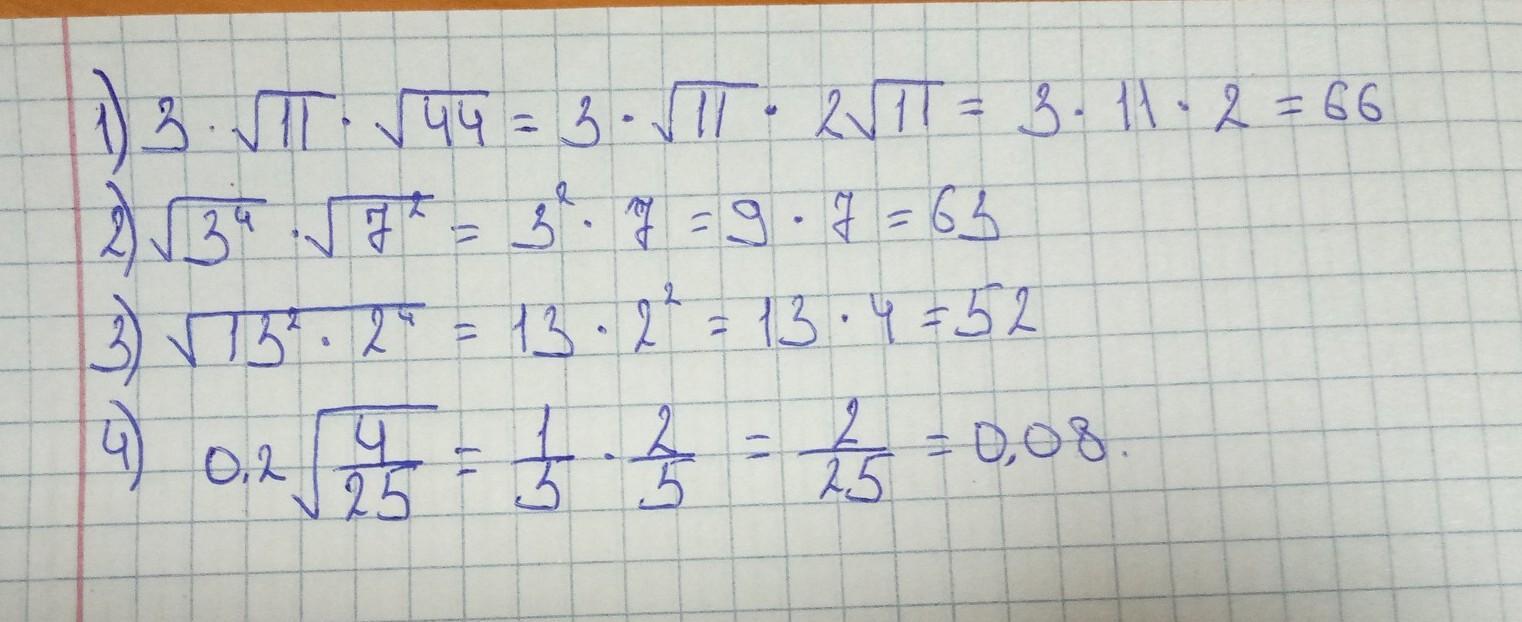 1) 3 · √11 · √44 = 3 · √11 · 2√11 = 3 · 11 · 2 = 66
2) √3⁴ · √7² = 3² · 7 = 9 · 7 = 63
3) √13² · 2⁴ = 13 · 2² = 13 · 4 = 52
4) 0,2√4/25 = 1/5 · 2/5 = 2/25 = 0,08.